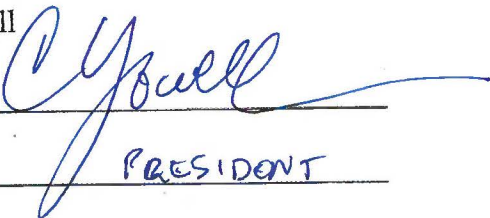 ll
C Yowell
PRESIDENT